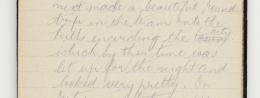 next made a beautiful round
trip in the trams onto the
hills encircling the city
which by this time was
lit up for the night and
looked very pretty. On